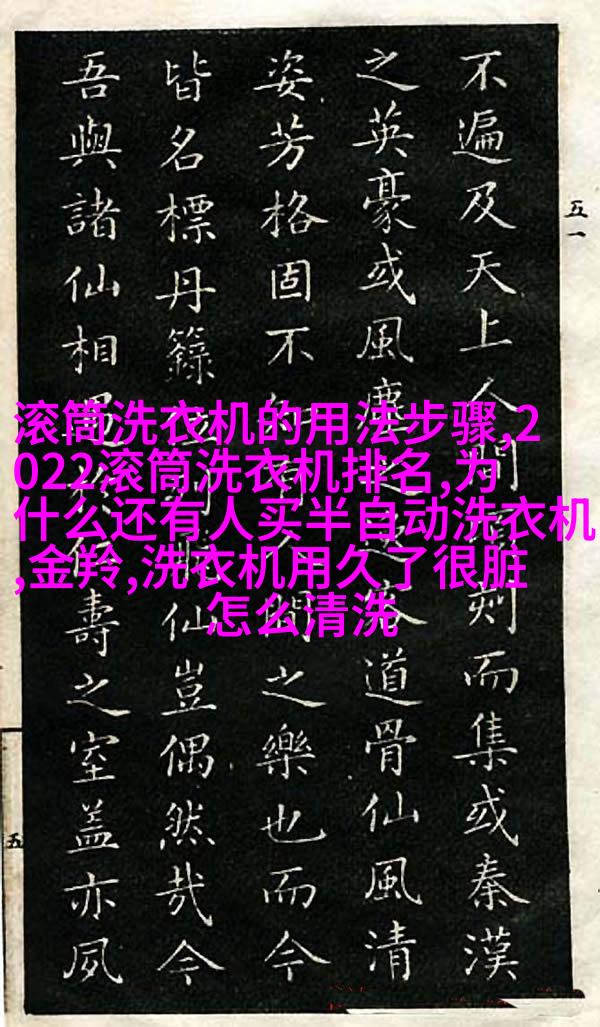 不遍及天上人間刻而集或秦漢
之英豪或風塵之客道骨仙風清
姿芳格固不人間之樂也而今
皆名標丹籙仙豈偶然哉今
吾與諸仙相遇壽之室蓋亦夙
五一
五
滚筒洗衣机的用法步骤,2
022滚筒洗衣机排名,为
什么还有人买半自动洗衣机
,金羚,洗衣机用久了很脏
怎么清洗